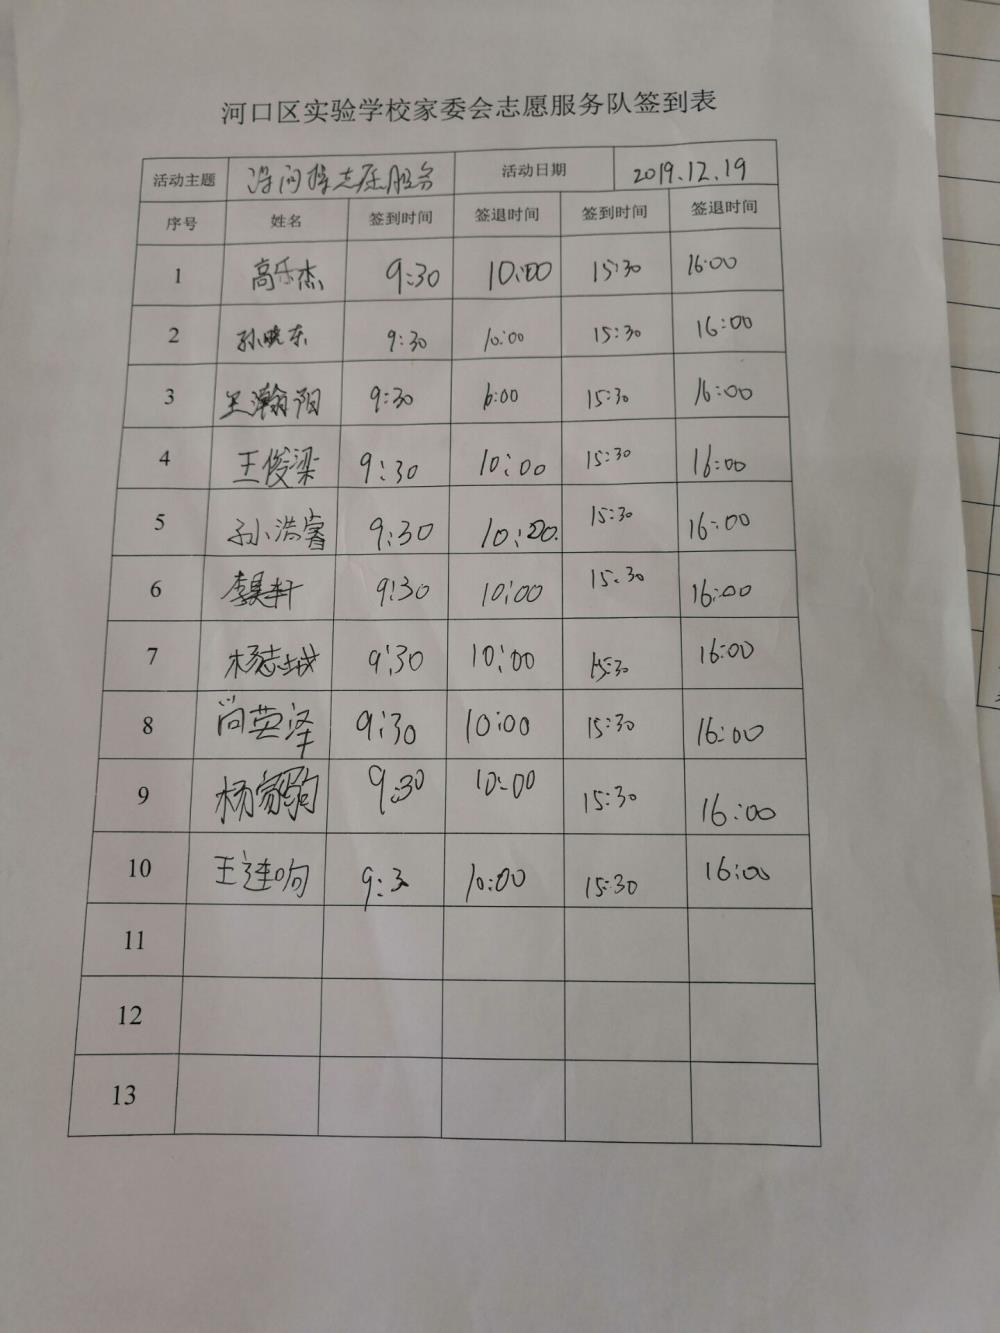 河口区实验学校家委会志愿服务队签到表
活动主题 课间操志愿服务 活动日期 2019.12.19
序号 姓名 签到时间 签退时间 签到时间 签退时间
1 高乐杰 9:30 10:00 15:30 16:00
2 孙晓东 9:30 10:00 15:30 16:00
3 吴瀚阳 9:30 10:00 15:30 16:00
4 王俊梁 9:30 10:00 15:30 16:00
5 孙浩睿 9:30 10:00. 15:30 16:00
6 李昊轩 9:30 10:00 15:30 16:00
7 杨志城 9:30 10:00 15:30 16:00
8 尚英泽 9:30 10:00 15:30 16:00
9 杨家驹 9:30 10:00 15:30 16:00
10 王连响 9:3 10:00 15:30 16:00
11
12
13